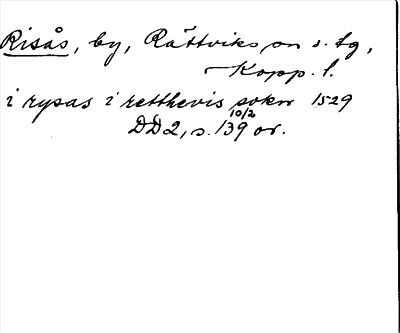 Risås, by, Rättviks sn o. tg,
Kopp. l.
i rysas i retthevis sokn 1529
10/2
DD2, s. 139 or.